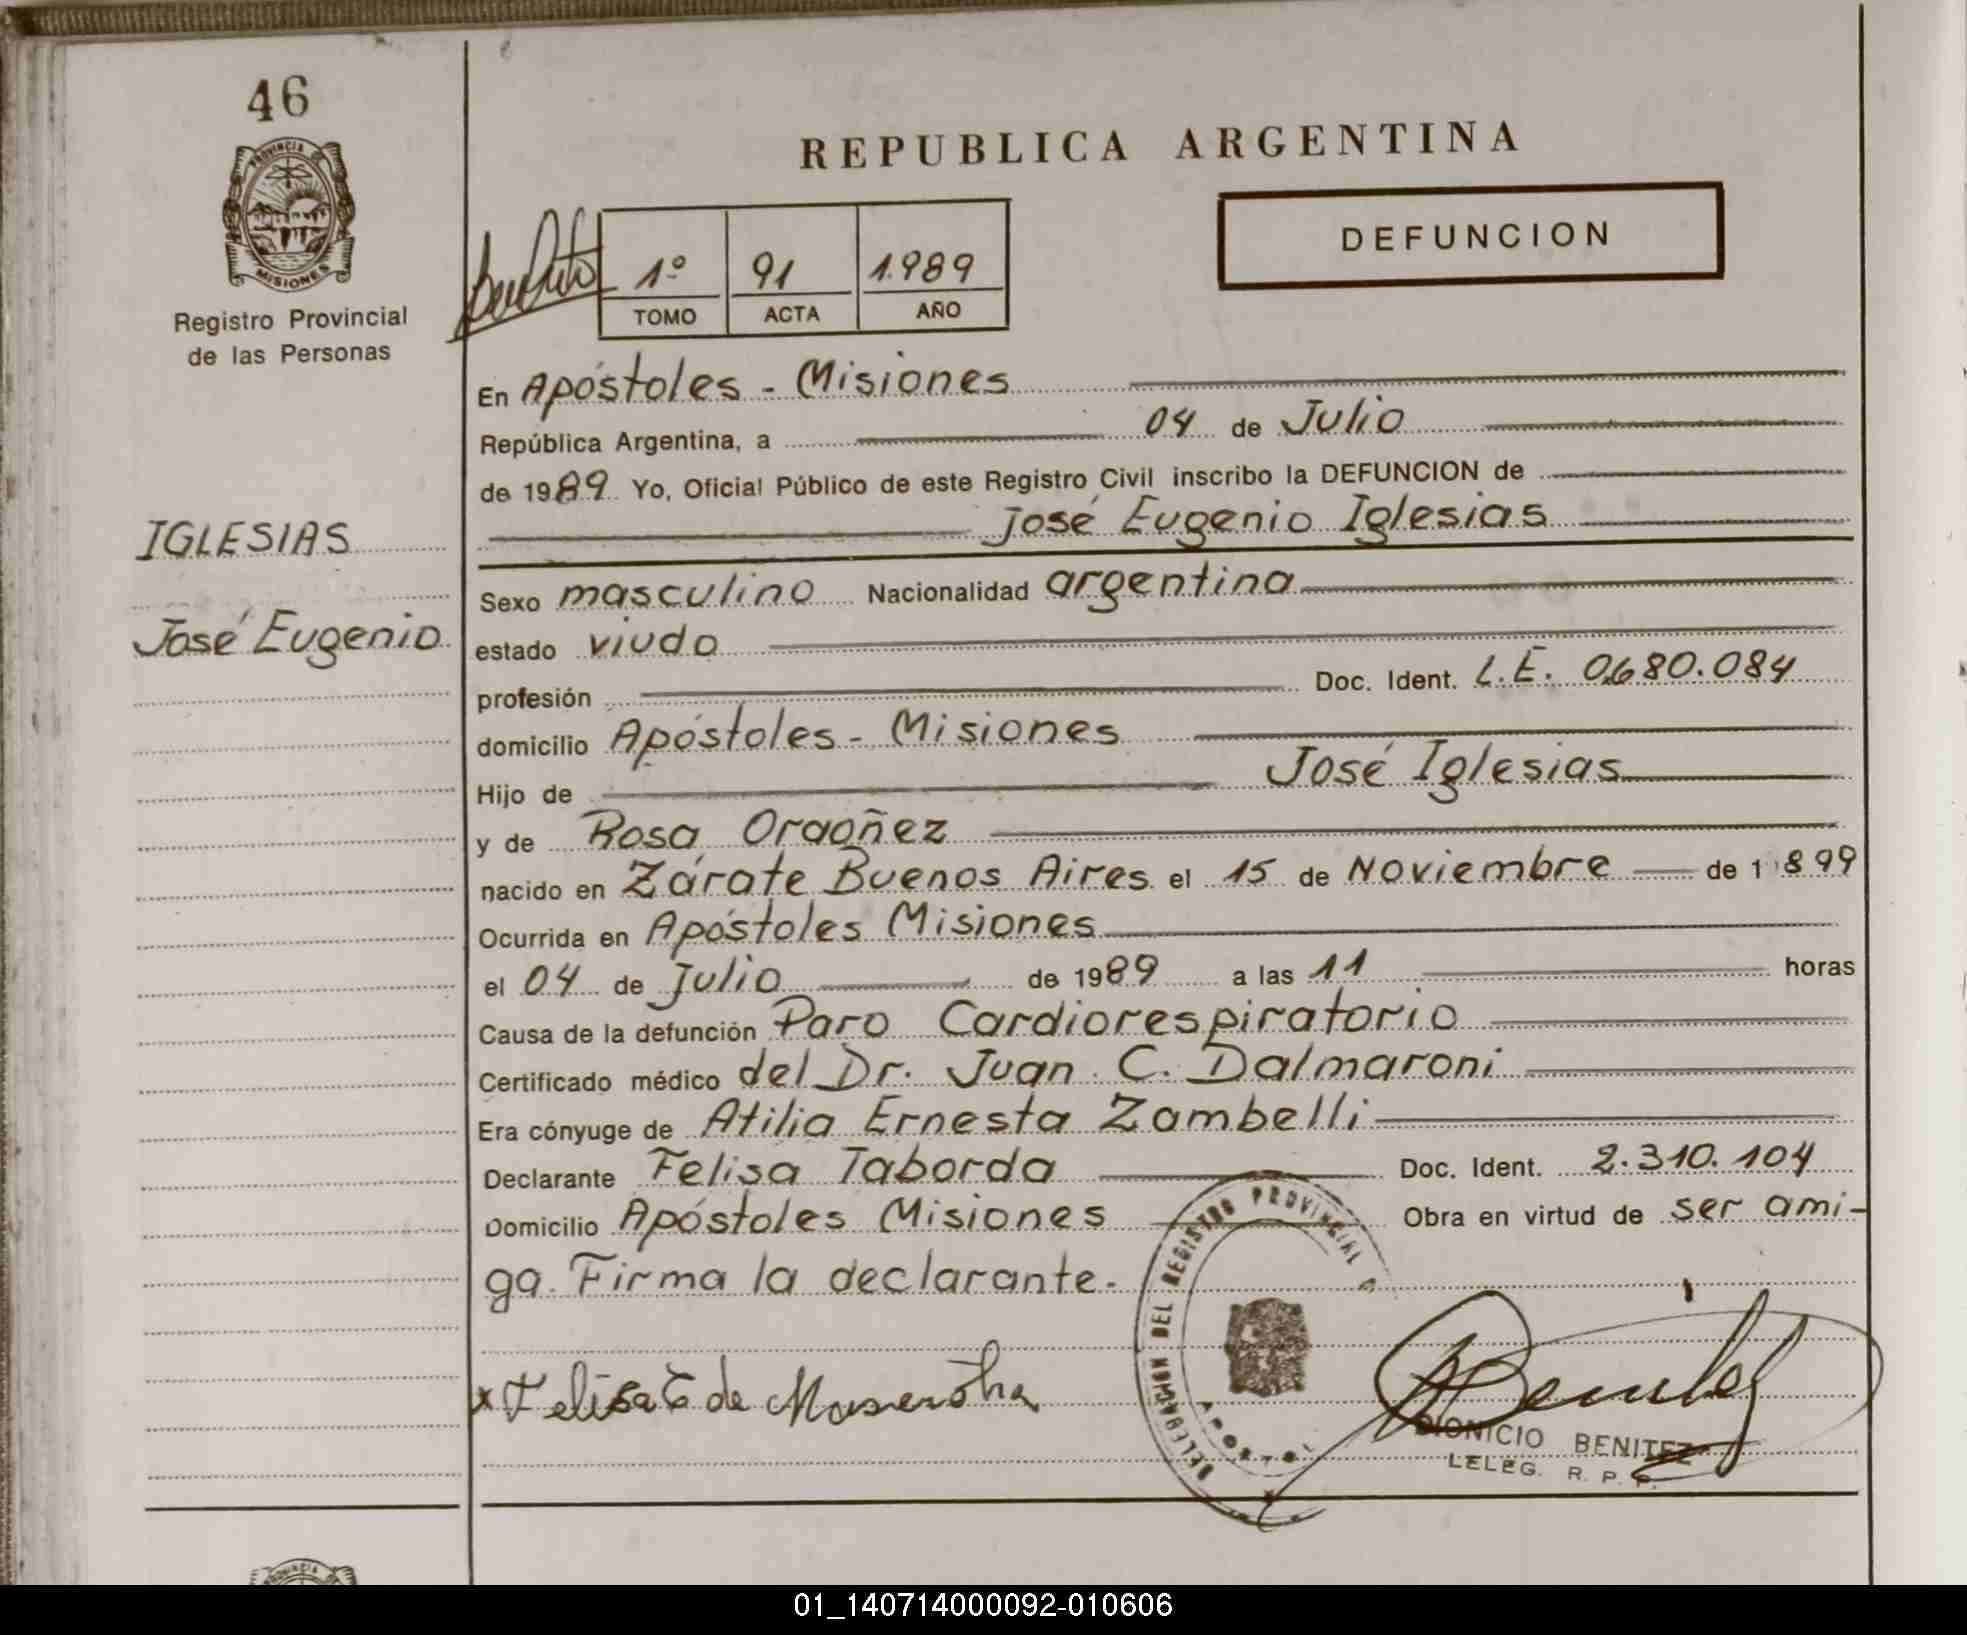 46
PROVINCIA DE
MISIONES
Registro Provincial
de las Personas
IGLESIAS
José Eugenio
REPUBLICA ARGENTINA
DEFUNCION
1º 91 1.989
TOMO ACTA AÑO
En Apóstoles - Misiones
República Argentina, a 04 de Julio
de 1989 Yo, Oficial Público de este Registro Civil inscribo la DEFUNCION de
José Eugenio Iglesias
Sexo masculino Nacionalidad argentina
estado viudo
profesión Doc. Ident. L.E. 0.680.084
domicilio Apóstoles - Misiones
Hijo de José Iglesias
y de Rosa Ordoñez
nacido en Zárate Buenos Aires el 15 de Noviembre de 1899
Ocurrida en Apóstoles Misiones
el 04 de Julio de 1989 a las 11 horas
Causa de la defunción Paro Cardiorespiratorio
Certificado médico del Dr. Juan C. Dalmaroni
Era cónyuge de Atilia Ernesta Zambelli
Declarante Felisa Taborda Doc. Ident. 2.310.104
Domicilio Apóstoles Misiones Obra en virtud de ser ami-
ga. Firma la declarante.
DELEGACION DEL REGISTRO PROVINCIAL
x Felisa T de
DIONICIO BENITEZ
LELEG. R. P. P.
01_140714000092-010606